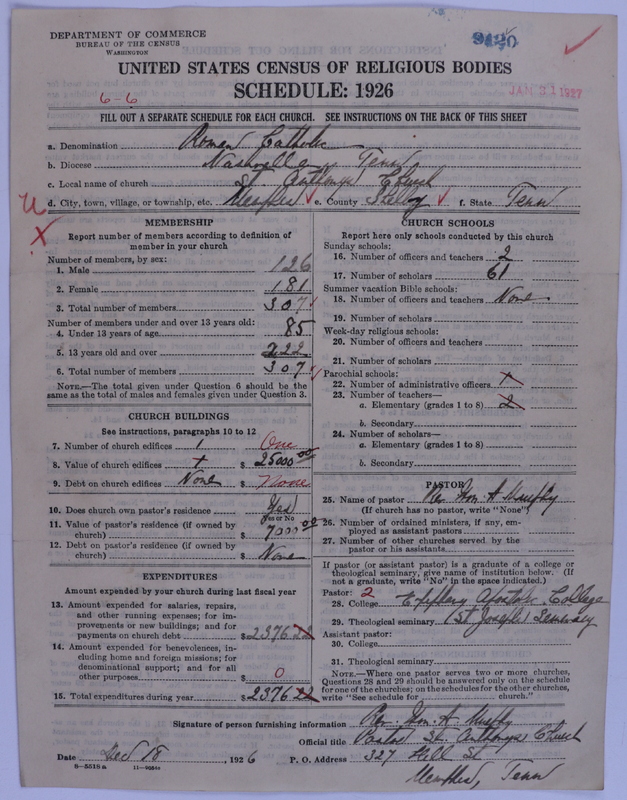 DEPARTMENT OF COMMERCE
BUREAU OF THE CENSUS
WASHINGTON
9420
UNITED STATES CENSUS OF RELIGIOUS BODIES
SCHEDULE: 1926
JAN 31 1927
6-6
FILL OUT A SEPARATE SCHEDULE FOR EACH CHURCH. SEE INSTRUCTIONS ON THE BACK OF THIS SHEET
a. Denomination Roman Catholic
b. Diocese Nashville Tenn
c. Local name of church St Anthonys Church
d. City, town, village, or township, etc. Memphis e. County Shelby f. State Tenn
MEMBERSHIP
Report number of members according to definition of
member in your church
Number of members, by sex:
1. Male 126
2. Female 181
3. Total number of members 307
Number of members under and over 13 years old:
4. Under 13 years of age 85
5. 13 years old and over 222
6. Total number of members 307
NOTE.—The total given under Question 6 should be
same as the total of males and females given under Question 3.
CHURCH BUILDINGS
See instructions, paragraphs 10 to 12
7. Number of church edifices 1 One
8. Value of church edifices $ 25000 00
9. Debt on church edifices None $ None
10. Does church own pastor's residence Yes
Yes or No
11. Value of pastor's residence (if owned by
church) $ 7000 00
12. Debt on pastor's residence (if owned by
church) $ None
EXPENDITURES
Amount expended by your church during last fiscal year
13. Amount expended for salaries, repairs,
and other running expenses; for im-
provements or new buildings; and for
payments on church debt $ 2376 22
14. Amount expended for benevolences, in-
cluding home and foreign missions; for
denominational support; and for all
other purposes $ 0
15. Total expenditures during year $ 2376 22
CHURCH SCHOOLS
Report here only schools conducted by this church
Sunday schools:
16. Number of officers and teachers 2
17. Number of scholars 61
Summer vacation Bible schools:
18. Number of officers and teachers None
19. Number of scholars
Week-day religious schools:
20. Number of officers and teachers
21. Number of scholars
Parochial schools:
22. Number of administrative officers
23. Number of teachers—
a. Elementary (grades 1 to 8) 2
b. Secondary
24. Number of scholars—
a. Elementary (grades 1 to 8)
b. Secondary
PASTOR
25. Name of pastor Rev. Wm. A Murphy
(If church has no pastor, write "None")
26. Number of ordained ministers, if any, em-
ployed as assistant pastors
27. Number of other churches served by the
pastor or his assistants
If pastor (or assistant pastor) is a graduate of a college or
theological seminary, give name of institution below. (If
not a graduate, write "No" in the space indicated.)
Pastor: 2
28. College Epiphany Apostolic College
29. Theological seminary (St Joseph) Seminary
Assistant pastor:
30. College
31. Theological seminary
NOTE.—Where one pastor serves two or more churches,
Questions 28 and 29 should be answered only on the schedule
for one of the churches; on the schedules for the other churches,
write "See schedule for church."
Signature of person furnishing information Rev. Wm. A Murphy
Official title Pastor St. Anthonys Church
Date Dec 18, 1926 P. O. Address 327 Hill St
Memphis, Tenn
8-5518a 11-9054a